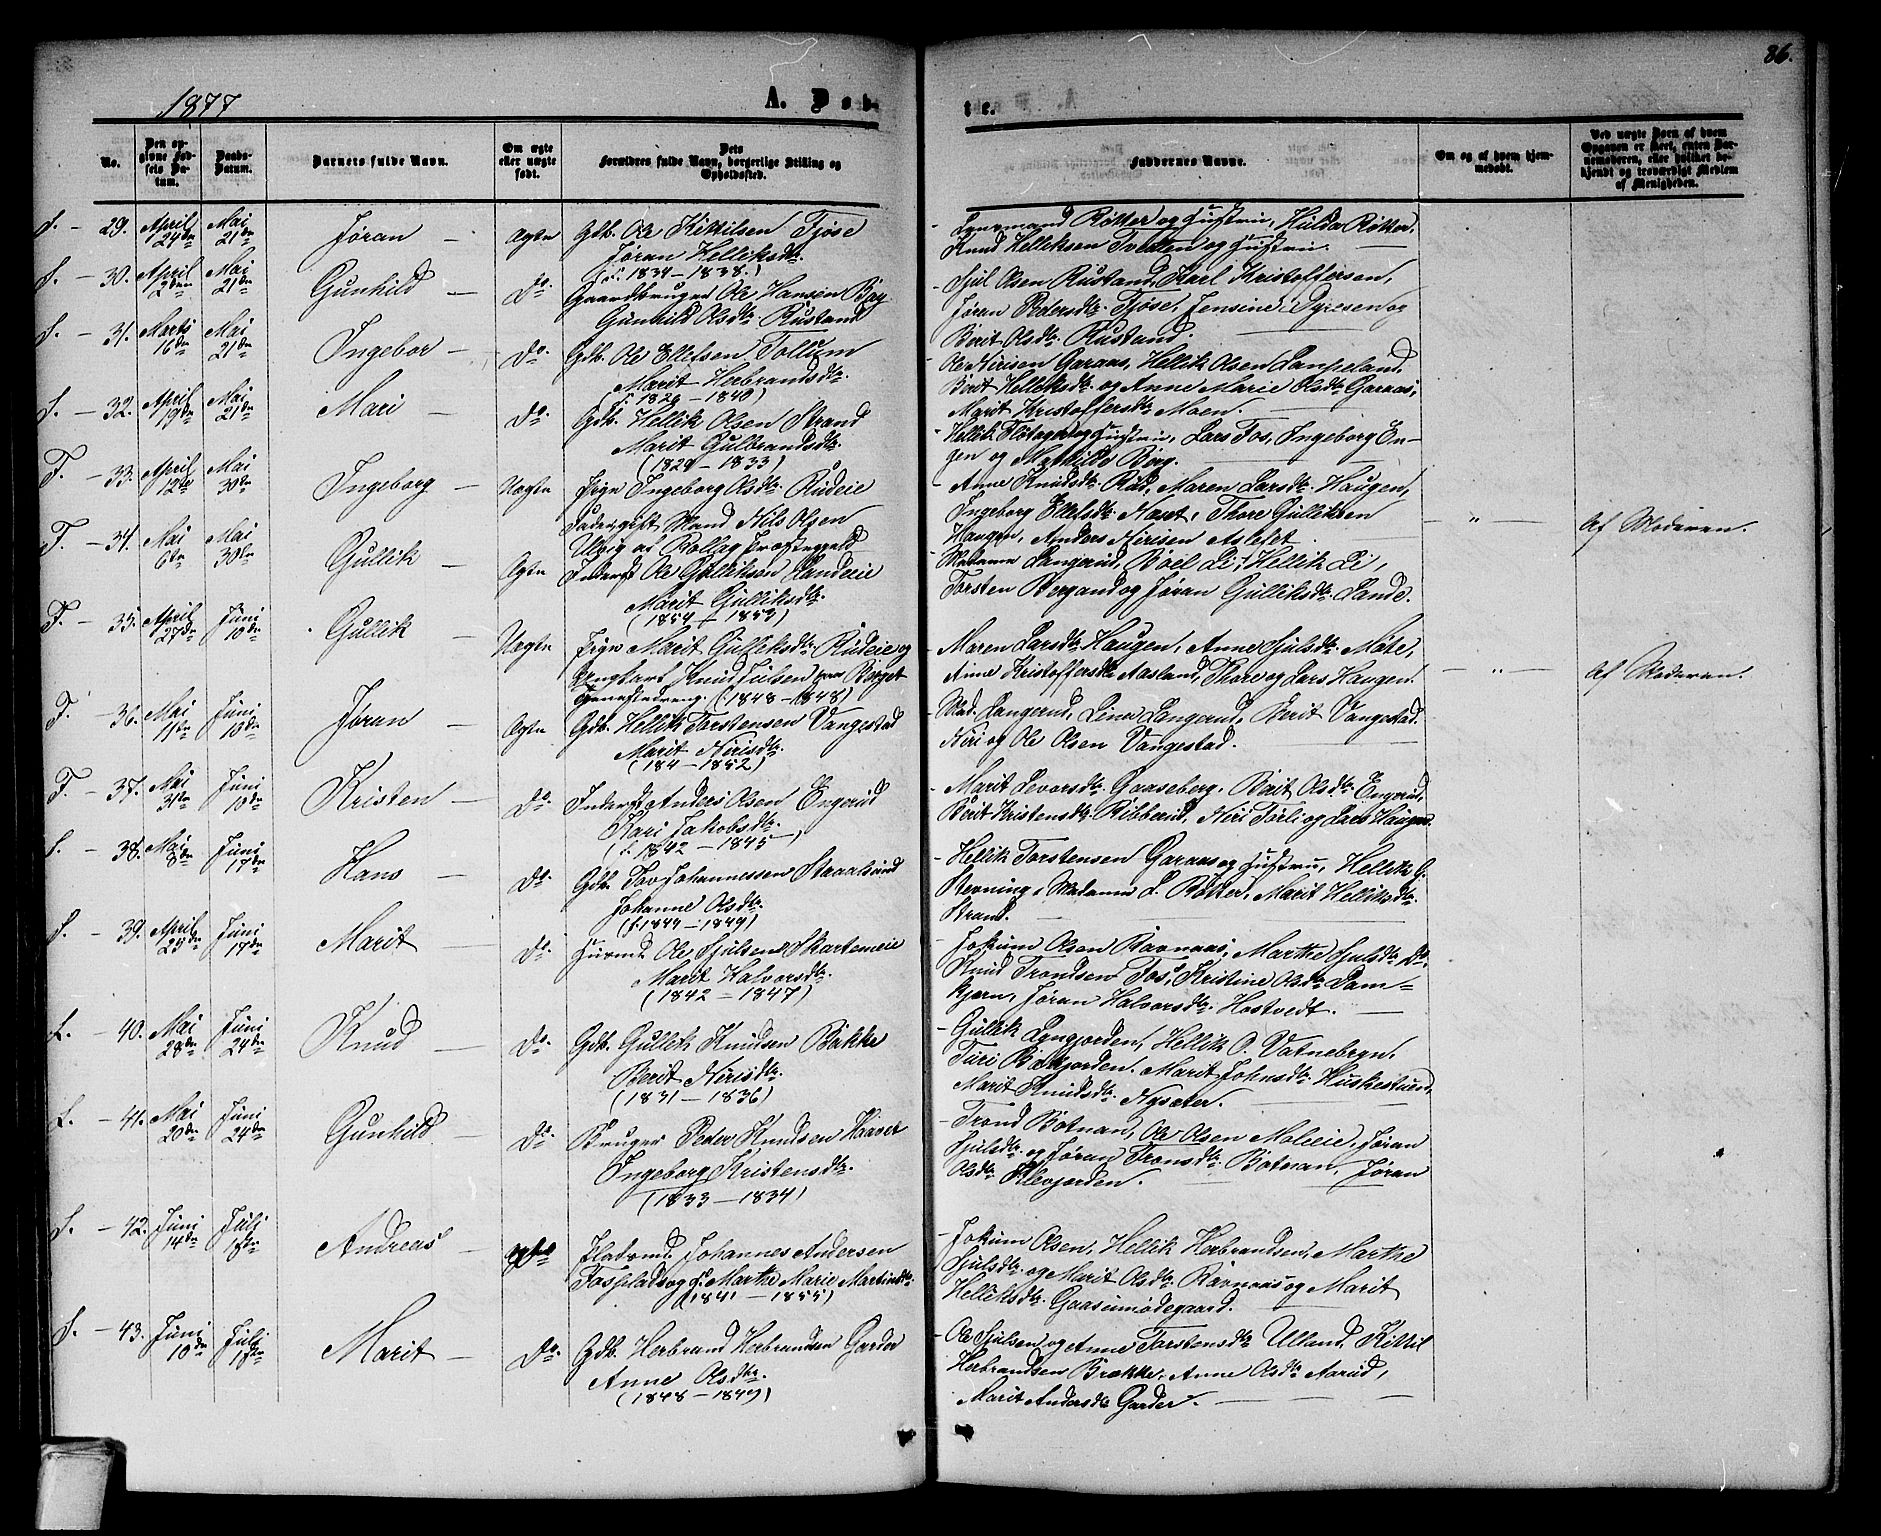 86.
1877
A. Døbte.
No.
Den opgivne Fødsels Datum.
Daabs-Datum.
Barnets fulde Navn.
Om ægte eller uægte født.
Dets Forældres fulde Navn, borgerlige Stilling og Opholdssted.
Faddernes Navne.
Om og af hvem hjemmedøbt.
Ved uægte Børn af hvem Opgaven er skeet, enten Barnemoderen, eller hvilket bekjendt og troværdigt Medlem af Menigheden.
S. - 29. April 24de Mai 21de Jøran - Ægte Gdb. Ole Kittilsen Tjøse
Jøran Helleksdtr.
(f. 1834 - 1838.)
- Lensmand Røtter og Hustru, Hulda Røtter,
Knud Helleksen Tveiten og Hustru.
S. - 30. April Mai 21de Gunhild - Do. Gaardbruger Ole Hansen Børg
Gunhild Olsdtr. Rustand
- Sjul Olsen Rustand, Karl Kristoffersen,
Jøran Pedersdtr. Tjøse, Jensine Dyresen og
Berit Olsdtr. Rustand.
S. - 31. Marts 16de Mai 21de Ingebor - Do. Gdb. Ole Ellefsen Tollum
Marit Herbrandsdtr.
(f. 1829 - 1840)
Ole Nirisen Garaas, Hellik Olsen Lampeland,
Berit Helleksdtr. og Anne Marie Olsdtr. Garaas,
Marit Kristoffersdtr. Moen.
S. - 32. April 19de Mai 21de Mari - Do. Gdb. Hellik Olsen Strand
Marit Gulbrandsdtr.
(1829 - 1833)
- Hellik Flotager og Hustru, Lars Fos, Ingeborg En-
gen og Mathilde Børg.
F. - 33. April 12te Mai 30te Ingeborg - Uægte Pige Ingeborg Olsdtr. Rudeie
Fader: gift Mand Nils Olsen
Ulvig af Rollag Præstegjeld
- Anne Knudsdtr. Rud, Maren Larsdtr. Haugen,
Ingeborg Ellefsdtr. Næset, Thore Gulliksen
Haugen, Anders Nirisen Aslefet.
- " - Af Moderen.
F. - 34. Mai 6te Mai 30te Gullik Ægte Inderst Ole Gulliksen Landeie
Marit Gulliksdtr.
(1854 - 1853)
- Madame Langerud, Bøel Li, Hellik Li,
Torsten Bergan og Jøran Gulliksdtr. Lande.
F. - 35. April 27de Juni 10de Gullik - Uægte Pige Marit Gulliksdtr. Rudeie og
Ungkarl Knud Juulsen paa Børget
Tjenestedreng. (1848 - 1848)
Maren Larsdtr. Haugen, Anne Sjulsdtr. Møte,
Anne Kristoffersdtr. Aasland, Thore og Lars Haugen.
- " - Af Moderen.
F. - 36. Mai 11te Juni 10de Jøran - Ægte Gdb. Hellik Torstensen Vangestad
Marit Nirisdtr.
(184 - 1852)
- Mad. Langerud, Lina Langerud, Berit Vangestad.
Niri og Ole Olsen Vangestad.
F. - 37. Mai 31te Juni 10de Kristen - Do. Inderst Anders Olsen Engerud
Kari Jakobsdtr.
(f. 1842 - 1845)
- Marit Levorsdtr. Gaaseberg, Berit Olsdtr. Engerud,
Berit Kristensdtr. Ribberud, Niri Torli og Lars Haugen.
S. - 38. Mai 8de Juni 17de Hans - Do. Gdb. Tov Johannessen Staalsund
Johanne Olsdtr.
(f. 1844 - 1849)
- Hellik Torstensen Garaas og Hustru, Hellik G.
Stevning, Madame L. Røtter, Marit Helliksdtr.
Strand.
S. - 39. April 25de Juni 17de Marit Do. Husmd. Ole Sjulsen Skartumeie
Marit Halvorsdtr.
(1842 - 1847)
- Jokum Olsen Ravnaas, Marthe Sjulsdtr. Do.
Knud Trondsen Fos, Kristine Olsdtr. Dam-
kjern, Jøran Halvorsdtr. Hostvedt.
L. - 40. Mai 28de Juni 24de Knud - Do. Gdb. Gullik Knudsen Bakke
Berit Nirisdtr.
(1831 - 1836)
- Gullik Lyngjorden, Hellik O. Vatnebryn,
Turi Bakjorden, Marit Johnsdtr. Huskestund,
Marit Knudsdtr. Nysæter.
L. - 41. Mai 20de Juni 24de Gunhild - Do. Bruger Peder Knudsen Haavet
Ingeborg Kristensdtr.
(1833 - 1834)
- Trond Botnan, Ole Olsen Moleeie, Jøran
Sjulsdtr. og Jøran Tronsdtr. Botnan, Jøran
Olsdtr. Klevjorden.
S. - 42. Juni 14de Juli 1ste Andreas - Ægte Fladrmd. Johannes Andersen
Fosplads og f. Marthe Marie Martinsdtr.
(1841 - 1855)
- Jokum Olsen, Hellik Herbrandsen, Marthe
Sjulsdtr. og Marit Olsdtr. Ravnaas og Marit
Helleksdtr. Gaasumødegaard.
S. - 43. Juni 10de Juli 1ste Marit - Do. Gdb. Herbrand Herbrandsen Garder
Anne Olsdtr.
(1848 - 1849)
- Ole Sjulsen og Anne Torstensdtr. Ulland, Kittil
Herbrandsen Brække, Anne Olsdtr. Aarud,
Marit Andersdtr. Garder.